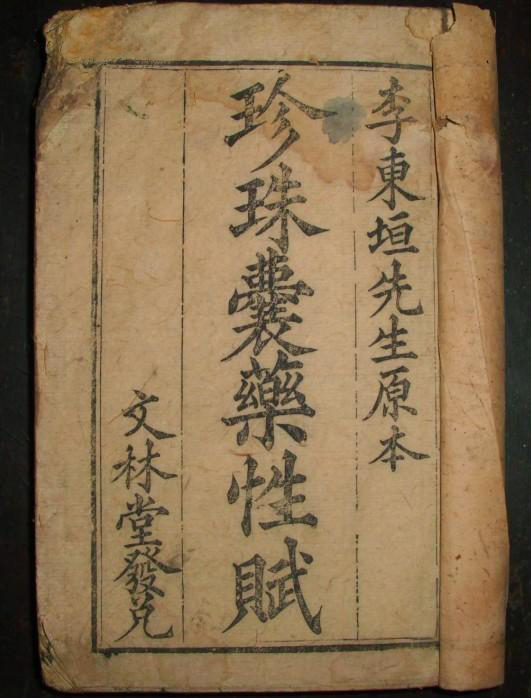 李東垣先生原本
珍珠囊藥性賦
文林堂發兌